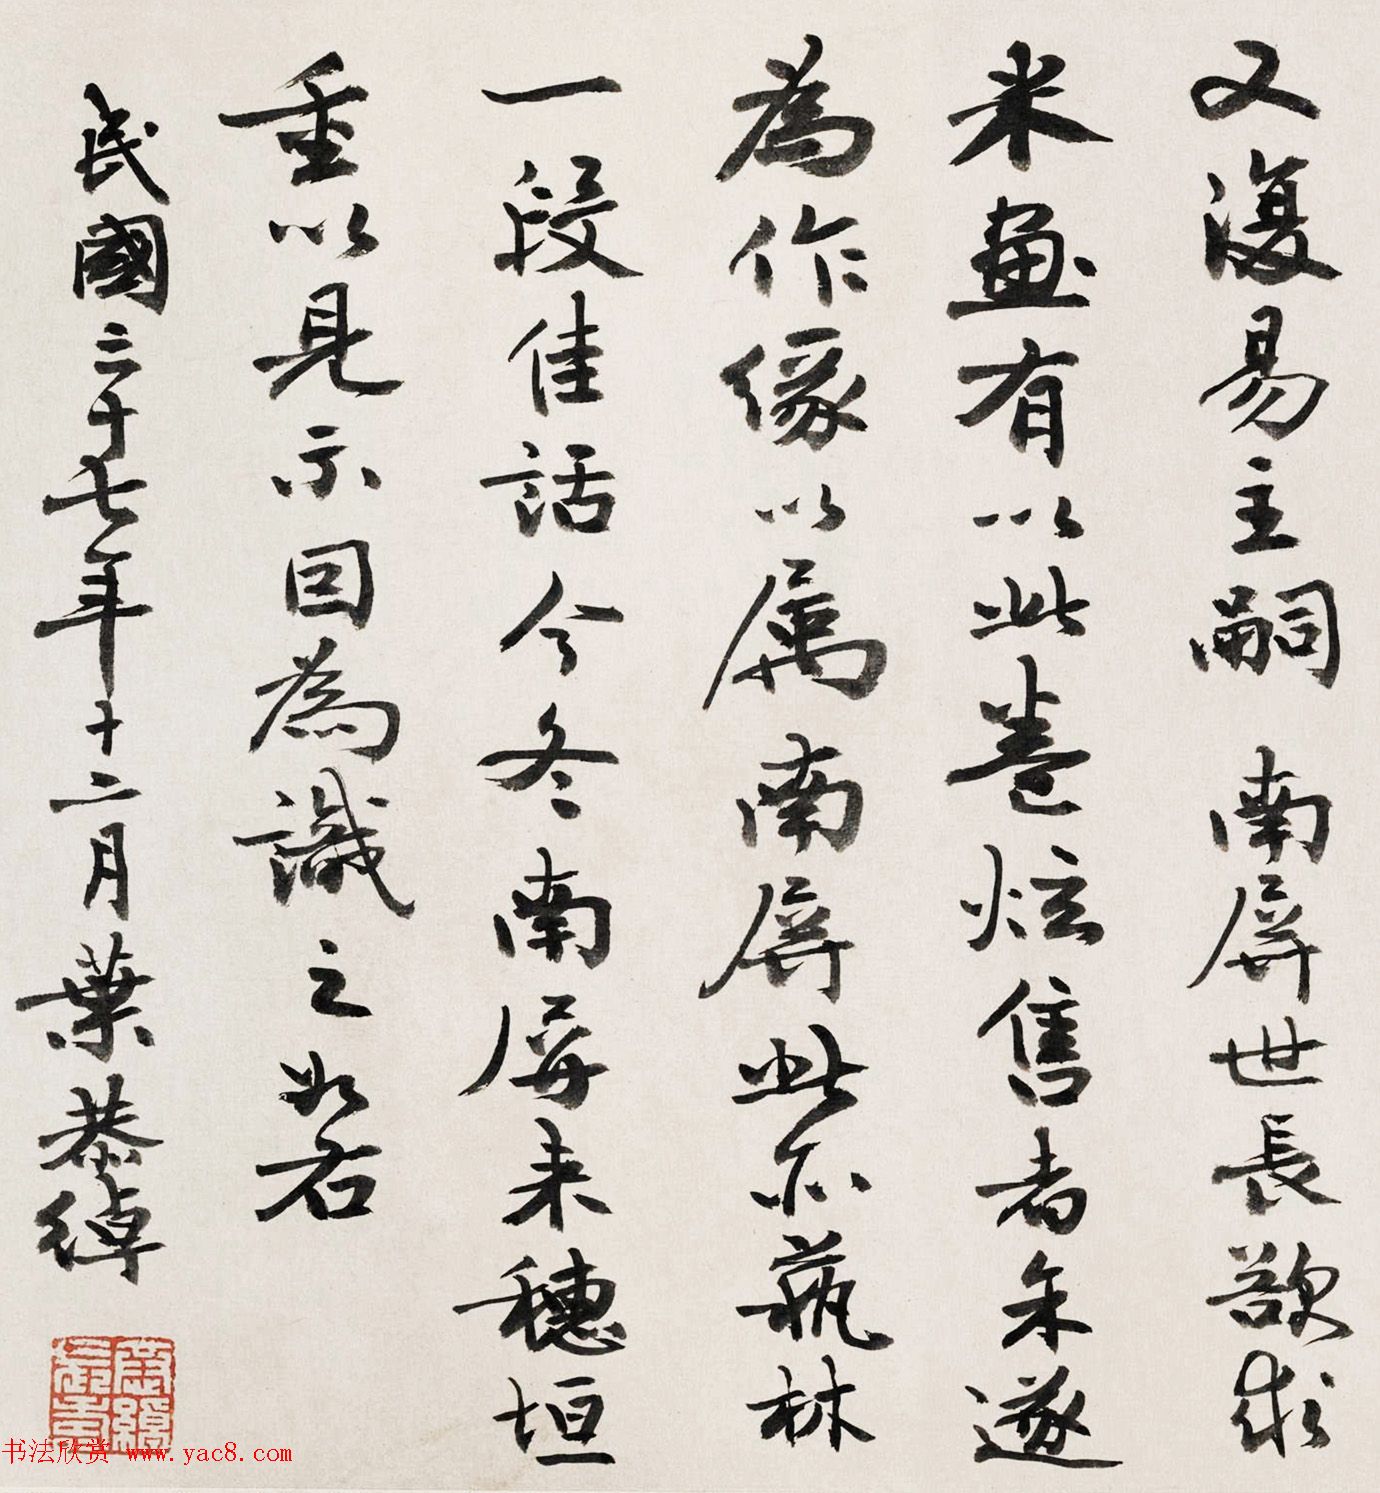 又復易主嗣 南屏世長欲求
米畫有以此卷炫售者余遂
為作緣以属南屏此亦蓺林
一段佳話今冬南屏来穗垣
重以見示因為識之如右
民國三十七年十二月葉恭綽
书法欣赏 www.yac8.com